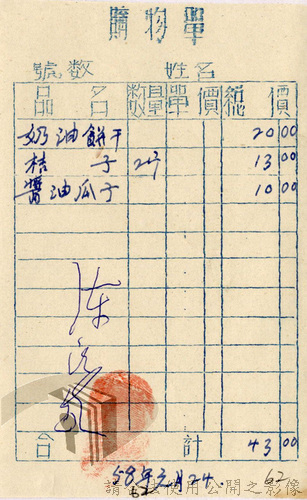 購物單
號數 姓名
品名 數量 單價 總價
奶油餅干 20 00
桔子 2斤 13 00
醬油瓜子 10 00
合計 43 00
58年元月24.
62
使用公開之影像